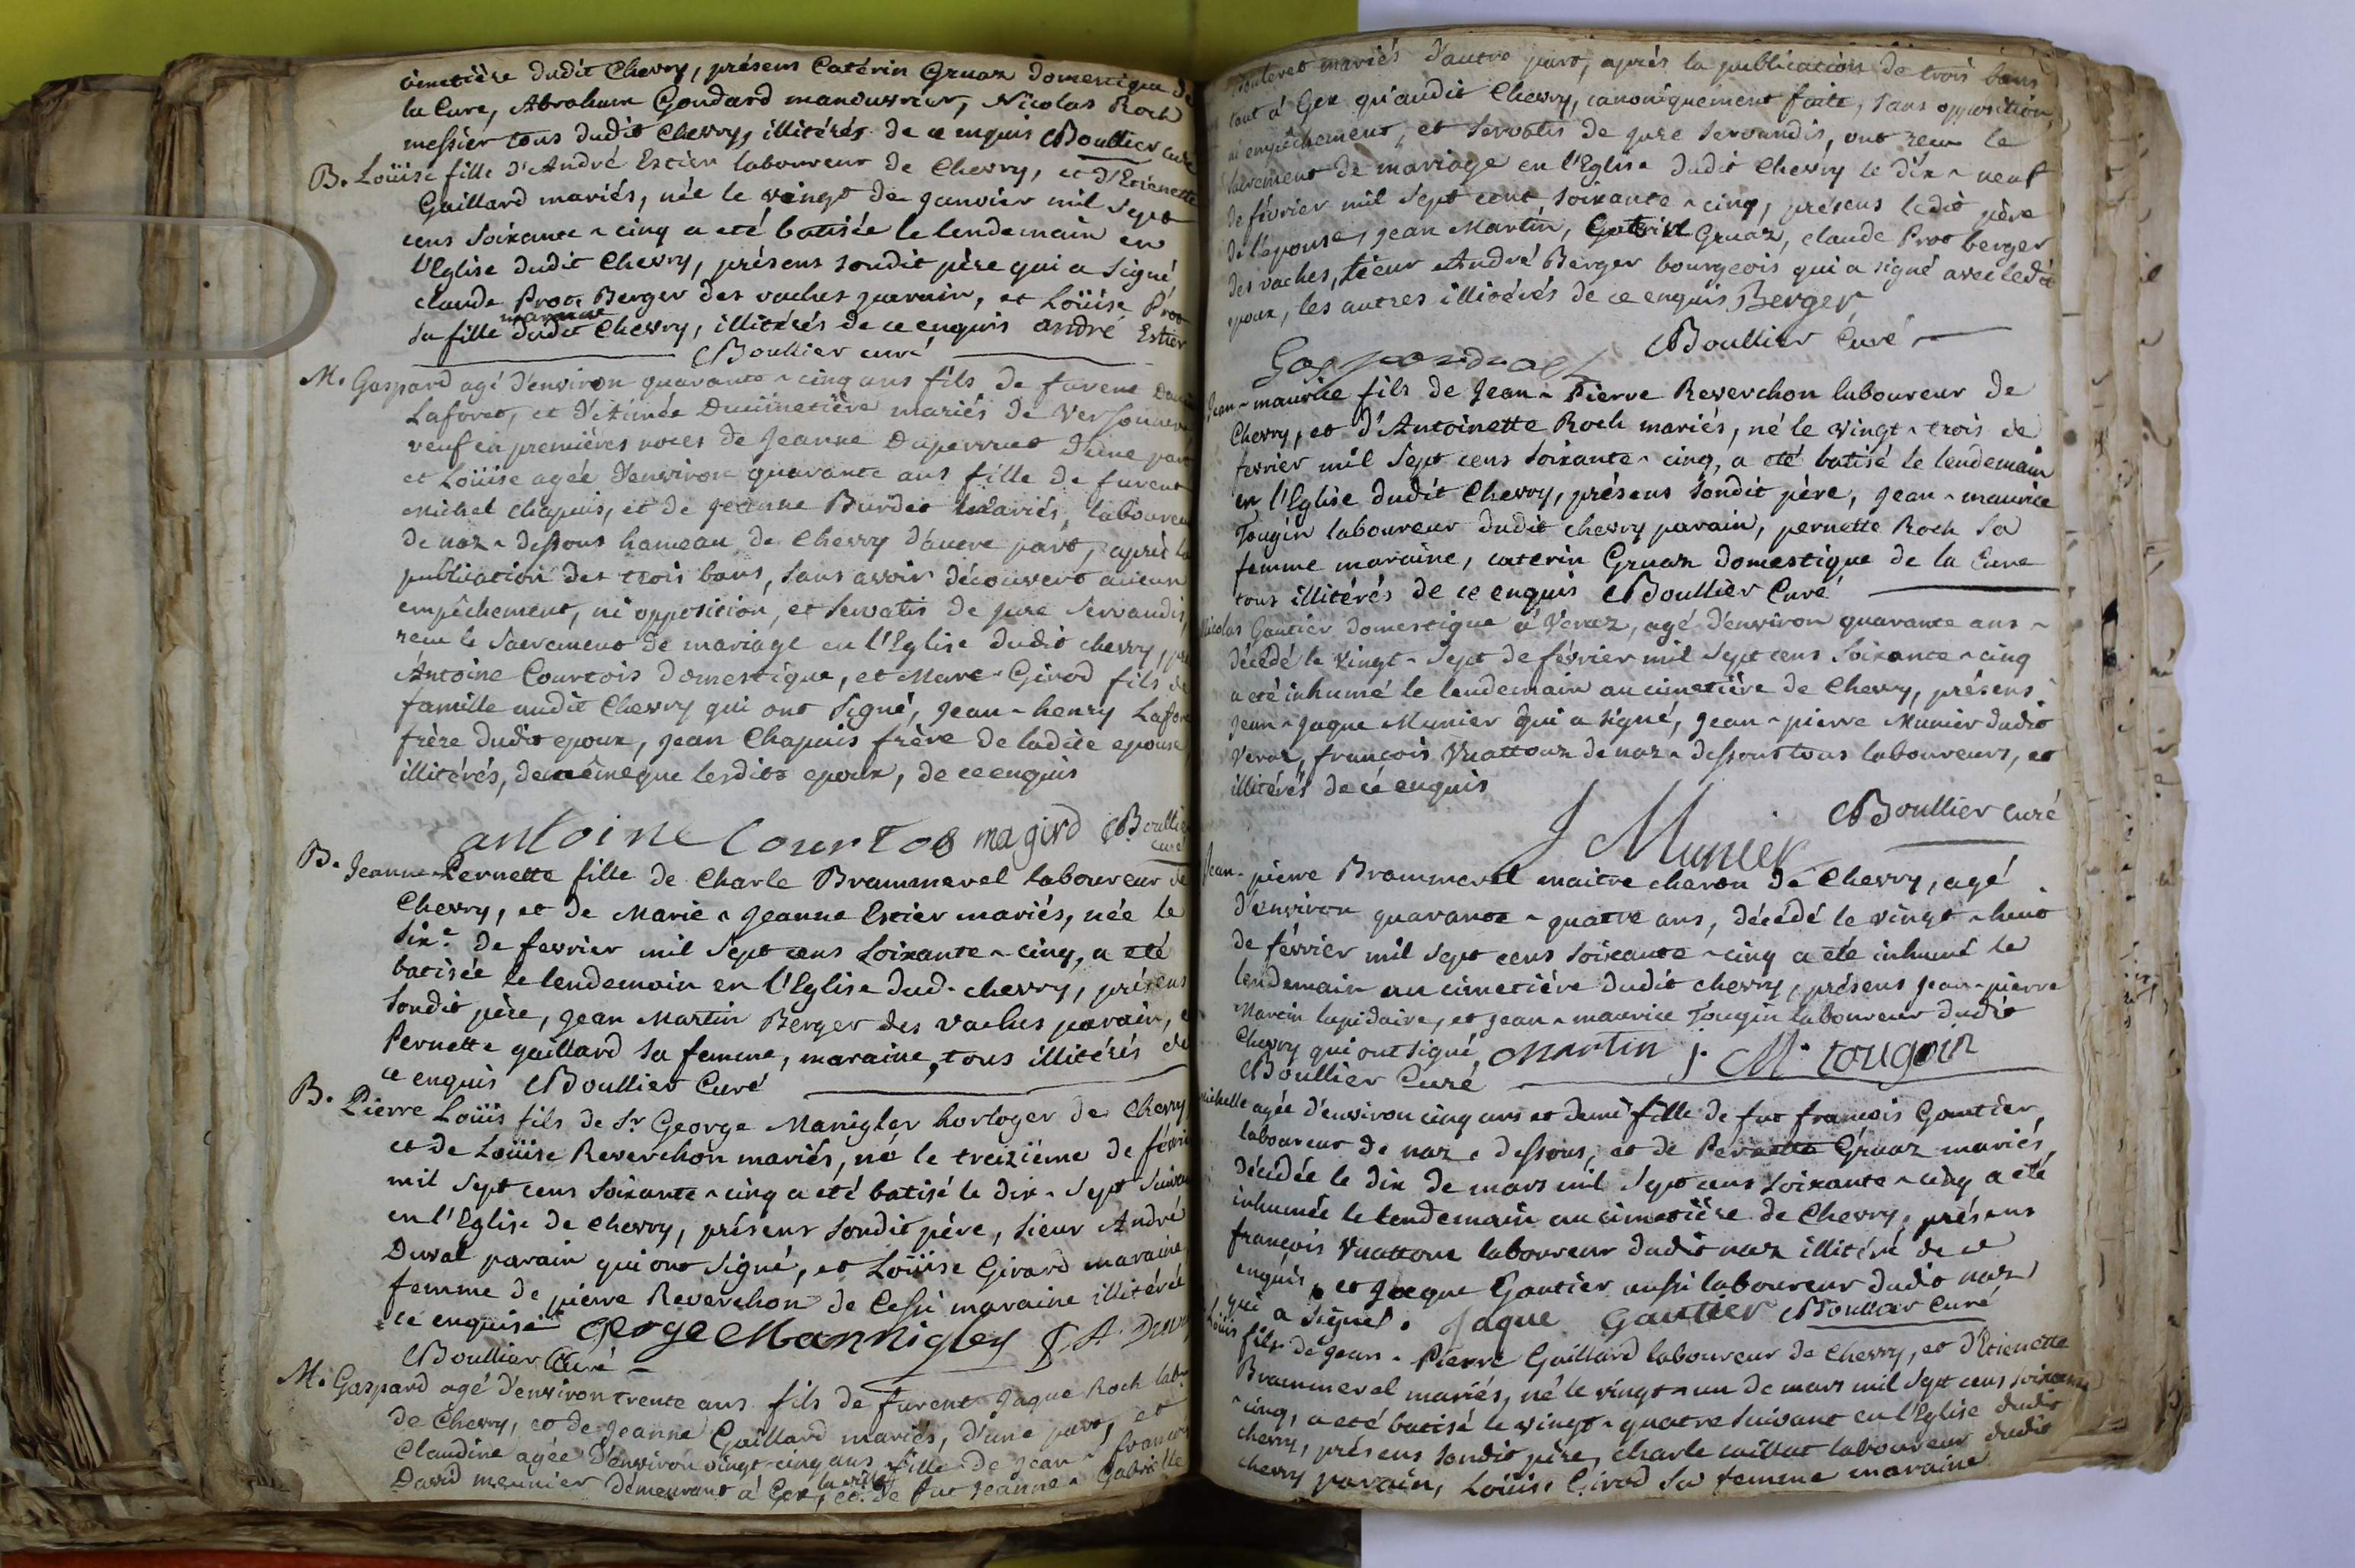 cimetière dudit Chevry, présens Catérin Gruaz domestique de
la Cure, Abraham Goudard manouvrier, Nicolas Roch
messier tous dudit Chevry, illitérés de ce enquis Boullier curé
B. Loüise fille d'André Estier laboureur de Chevry, et d'Etienette
Gaillard mariés, née le vingt de janvier mil sept
cens soixante-cinq a eté batisée le lendemain en
l'Eglise dudit Chevry, présens sondit père qui a signé,
claude Prot Berger des vaches parain, et Loüise Prot
maraine
sa fille dudit Chevry, illitérés de ce enquis andré Estier
Boullier curé
M. Gaspard agé d'environ quarante-cinq ans fils de furent
Laforet, et d'Aimée Ducimetière mariés de Versonnex
veuf en premières noces de Jeanne Duperrut d'une part
et Loüise agée d'environ quarante ans fille de furent
Michel Chapuis, et de Jeanne Burdet mariés, laboureur
de naz-dessous hameau de Chevry d'autre part, après la
publication des trois bans, sans avoir découvert aucun
empêchement, ni opposition, et servatis de jure servandis,
reçu le Sacrement de mariage en l'Eglise dudit chevry,
Antoine Courtois domestique, et Marc-Girod fils de
famille audit Chevry qui ont signé, Jean-henry Laforet
frère dudit epoux, Jean Chapuis frère de ladite epouse
illitérés, de même que lesdits epoux, de ce enquis
antoine Courtos ma gird Boullier
curé
B. Jeanne-Pernette fille de Charle Brammerel laboureur de
Chevry, et de Marie-Jeanne Estier mariés, née le
six.e de fevrier mil sept cens soixante-cinq, a eté
batisée le lendemain en l'Eglise dud. chevry, présens
sondit père, Jean Martin Berger des vaches parain, et
Pernette gaillard sa femme, maraine, tous illitérés de
ce enquis Boullier Curé
B. Pierre Loüis fils de Sr George Manigler horloger de Chevry
et de Loüise Reverchon mariés, né le treizième de février
mil sept cens soixante-cinq a été batisé le dix-sept suivant
en l'Eglise de Chevry, présens sondit père, sieur André
Duval parain qui ont signé, et Loüise Girard maraine
femme de pierre Reverchon de Cessi maraine illitérée
ce enquise George Mannigley A. Duval
Boullier Curé
M. Gaspard agé d'environ trente ans fils de furent Jaque Roch labr
de Chevry, et de Jeanne Gaillard mariés, d'une part, et
Claudine agée d'environ vingt-cinq ans fille de Jean-françois
la ville
David meunier démeurant à Gex, et de fut Jeanne-Gabrielle
mariés d'autre part, après la publication de trois bans
tant à Gex qu'audit Chevry, canoniquement faite, sans opposition,
ni empêchement, et servatis de jure servandis, ont reçu le
sacrement de mariage en l'Eglise dudit Chevry le dix-neuf
de février mil sept cent soixante-cinq, présens ledit père
de l'epouse, jean Martin, Catérin Gruaz, claude Prot berger
des vaches, sieur André Berger bourgeois qui a signé avec ledit
epoux, les autres illitérés de ce enquis Berger
Boullier Curé
Jean-maurice fils de Jean-Pierre Reverchon laboureur de
Chevry, et d'Antoinette Roch mariés, né le vingt-trois de
fevrier mil sept cens soixante-cinq, a eté batisé le lendemain
en l'Eglise dudit Chevry, présens sondit père, Jean-maurice
Tougin laboureur dudit chevry parain, pernette Roch sa
femme maraine, caterin Gruaz domestique de la Cure
tous illitérés de ce enquis Boullier Curé
Nicolas Gautier domestique à Veraz, agé d'environ quarante ans
décédé le vingt-sept de février mil sept cens soixante-cinq
a eté inhumé le lendemain au cimetière de Chevry, présens
Jean-Jaque Munier qui a signé, Jean-pierre Munier dudit
Veraz, françois Vuattoux de naz-dessous tous laboureurs, et
illitérés de ce enquis
Boullier curé
J Munier
Jean-pierre Brammerel maitre charon de Chevry, agé
d'environ quarante-quatre ans, décédé le vingt-huit
de février mil sept cens soixante-cinq a eté inhumé le
lendemain au cimetière dudit chevry, présens Jean-pierre
Martin lapidaire, et Jean-maurice Tougin laboureur dudit
Chevry qui ont signé, Martin J. M. tougin
Boullier Curé
agée d'environ cinq ans et demi fille de fut françois Gautier,
laboureur de naz-dessous, et de Pernette Gruaz mariés,
décédée le dix de mars mil sept cens soixante-cinq a eté
inhumée le lendemain au cimetière de Chevry, présens
françois Vuattoux laboureur dudit naz illitéré de ce
enquis, et Jaque Gautier aussi laboureur dudit naz
qui a signé. Jaque Gautier Boullier Curé
Loüis fils de Jean-Pierre Gaillard laboureur de Chevry, et d'Etienette
Brammerel mariés, né le vingt-un de mars mil sept cens soixante
-cinq, a eté batisé le vingt-quatre suivant en l'Eglise dudit
chevry, présens sondit père, Charle caillat laboureur dudit
chevry parain, Loüise Girod sa femme maraine